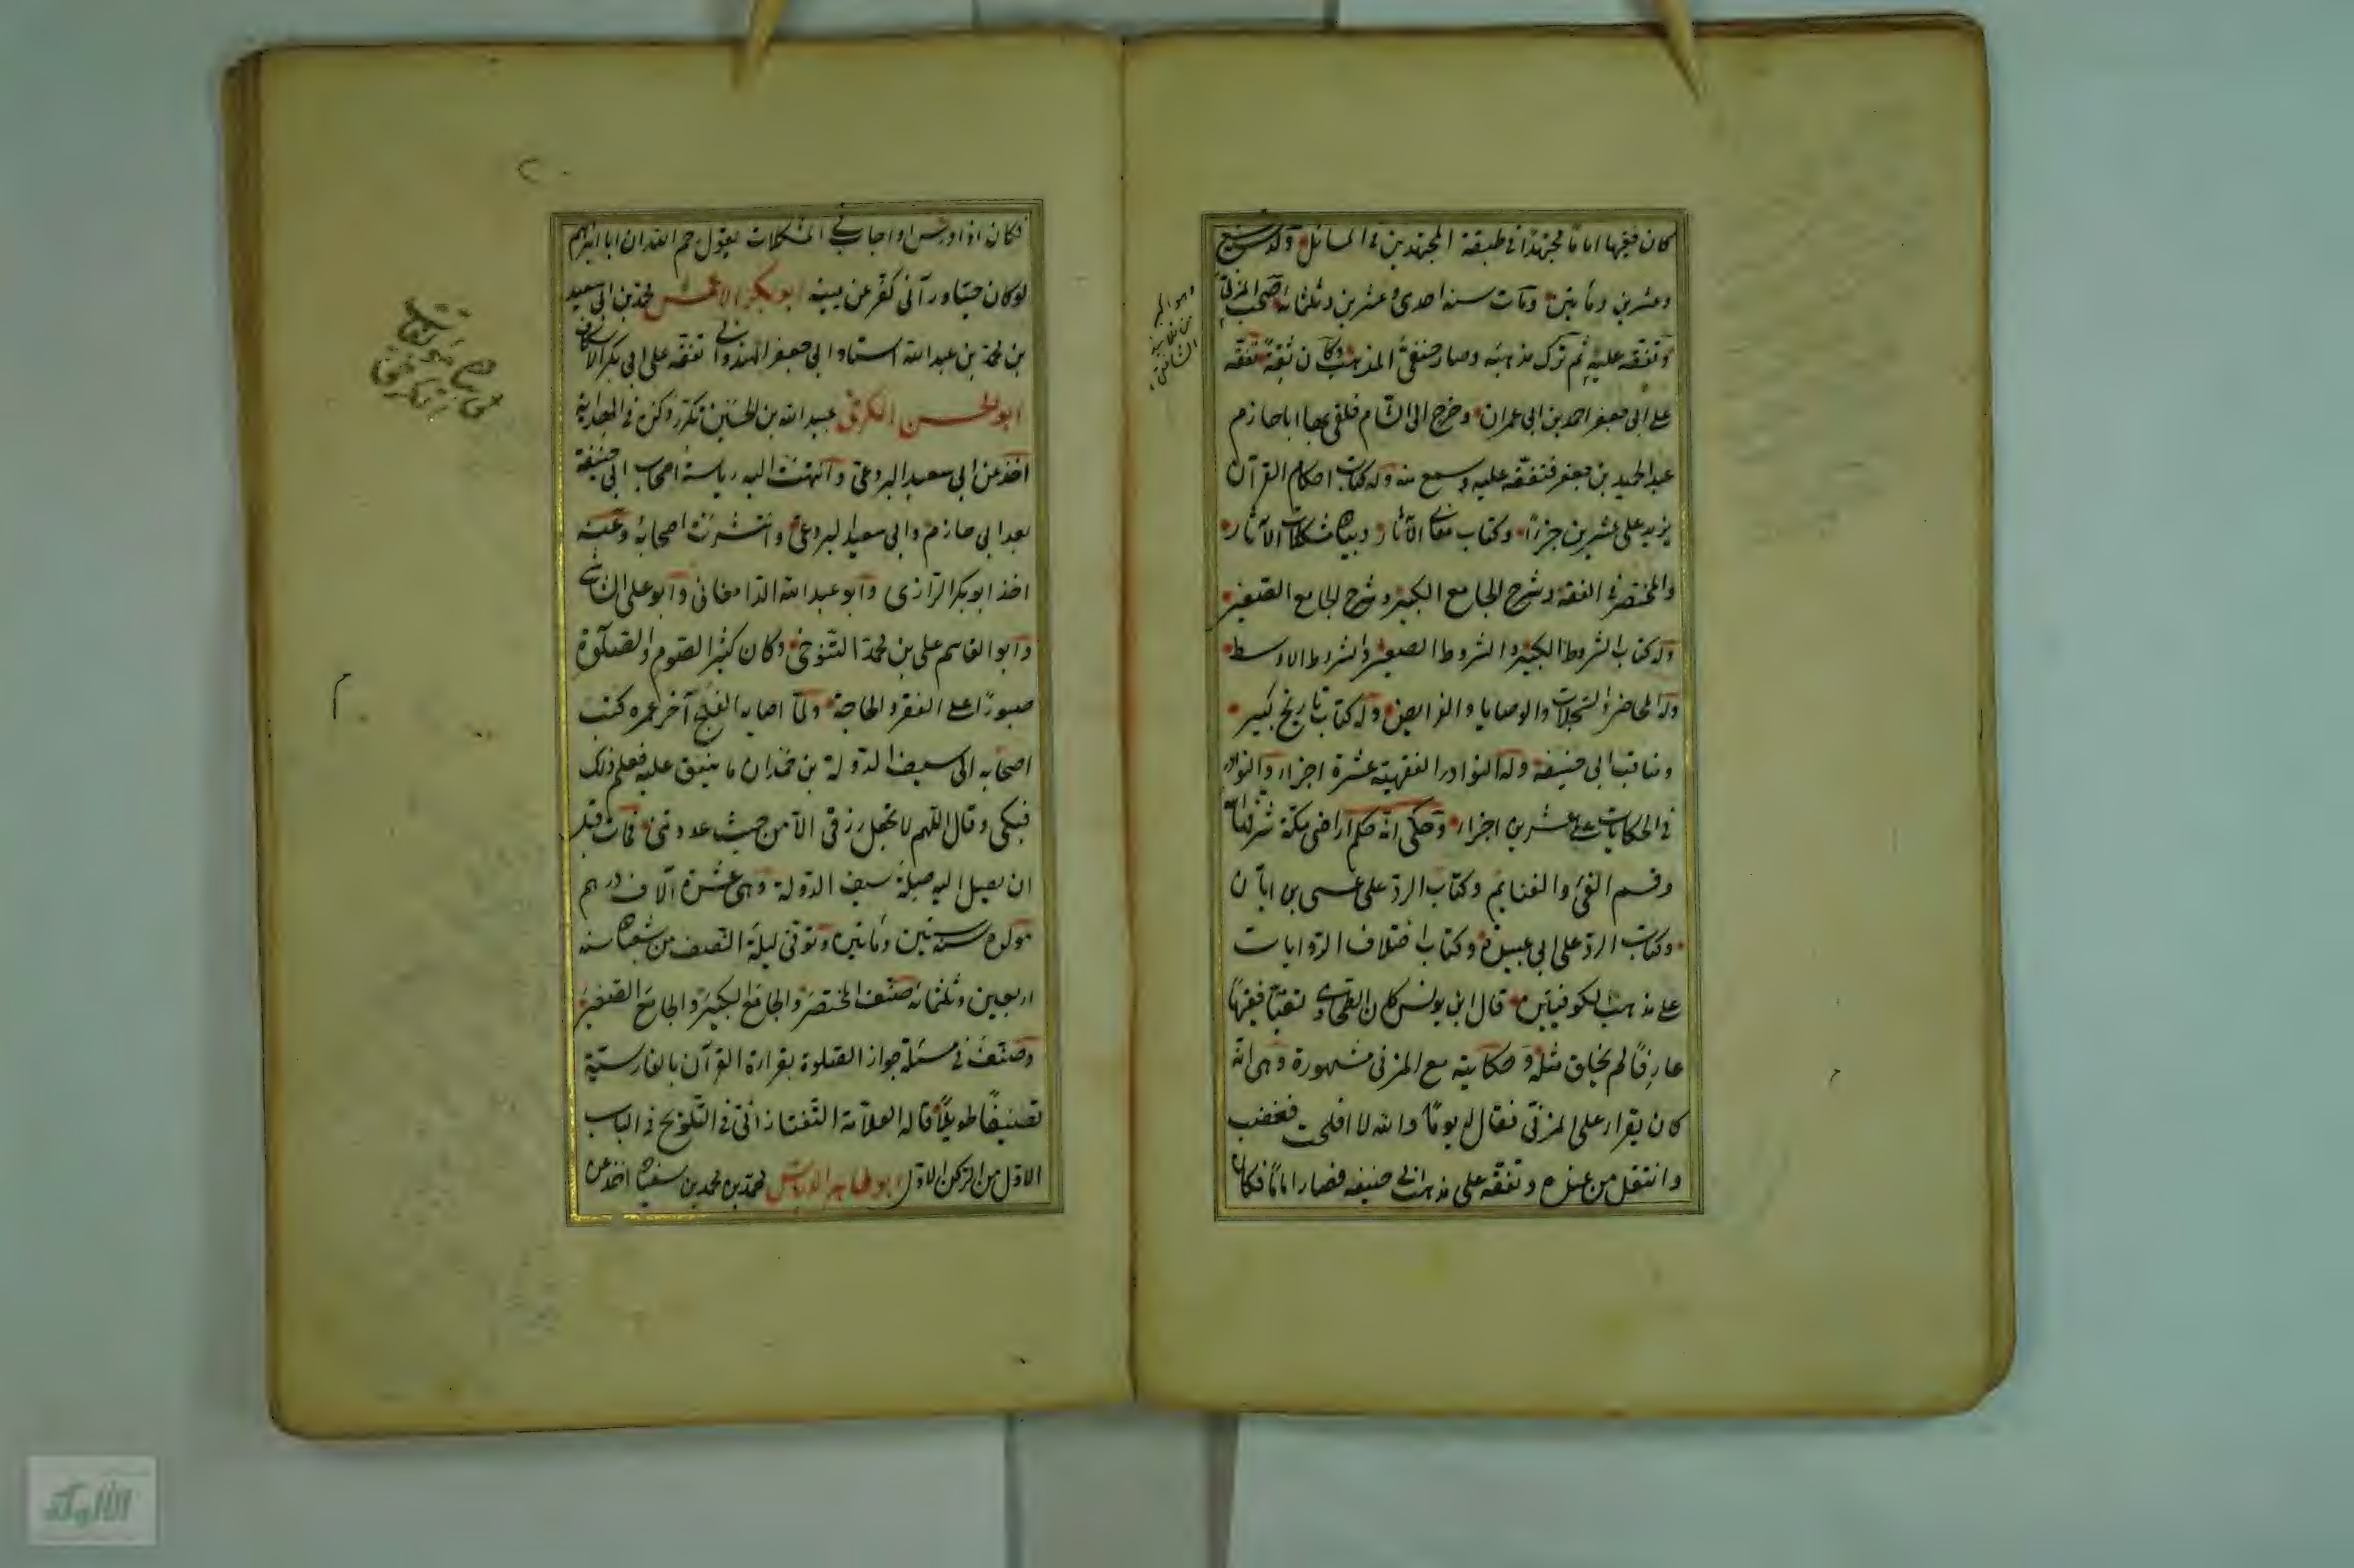 كان فقيها اماما مجتهدا فى طبقة المجتهدين فى المسائل ولد سنة تسع
وعشرين ومأتين ومات سنة احدى وعشرين وثلثمائة صحب المزنى
وتفقه عليه ثم ترك مذهبه وصار حنفى المذهب وكان ثقة تفقه
على ابى جعفر احمد بن ابى عمران وخرج الى الشام فلقى بها ابا حازم
عبد الحميد بن جعفر فتفقه عليه وسمع منه وله كتاب احكام القرآن
يزيد على عشرين جزءا وكتاب معانى الآثار وبيان مشكلات الآثار
والمختصر فى الفقه وشرح الجامع الكبير وشرح الجامع الصغير
وله كتاب الشروط الكبير والشروط الصغير والشروط الاوسط
وله المحاضر والسجلات والوصايا والفرايض وله كتاب تاريخ كبير
ومناقب ابى حنيفة وله النوادر الفقهية عشرة اجزاء والنوادر
فى الحكايات على عشرين اجزاء وحكى انه حكم اراضى مكة شرفها الله
وقسم الفئ والغنايم وكتاب الرد على عيسى بن ابان
وكتاب الرد على ابى عبيدة وكتاب اختلاف الروايات
على مذهب الكوفيين قال ابن يونس كان الطحاوى ثقة فقيها
عارفا لم يخلق مثله وحكايته مع المزنى مشهورة وهى انه
كان يقرأ على المزنى فقال له يوما والله لا افلحت فغضب
وانتقل من عنده وتفقه على مذهب ابى حنيفة فصار اماما فكان
فكان اذا درس او اجاب فى المشكلات يقول رحم الله ابا ابراهيم
لو كان حيا ورآنى كفر عن يمينه ابو بكر الاعمش محمد بن ابى سعيد
بن محمد بن عبد الله استاد ابى جعفر الهندوانى تفقه على ابى بكر الاسكاف
ابو الحسن الكرخى عبيد الله بن الحسين تكرر ذكره فى الهداية
اخذ عن ابى سعيد البردعى وانتهت اليه رياسة اصحاب ابى حنيفة
بعد ابى حازم وابى سعيد البردعى وانتشرت اصحابه وعنه
اخذ ابو بكر الرازى وابو عبد الله الدامغانى وابو على الشاشى
وابو القاسم على بن محمد التنوخى وكان كثير الصوم والصلوة
صبورا على الفقر والحاجة ولما اصابه الفلج آخر عمره كتب
اصحابه الى سيف الدولة بن حمدان ما ينفق عليه فعلم ذلك
فبكى وقال اللهم لا تجعل رزقى الا من حيث عودتنى فمات قبل
ان يصل اليه صلة سيف الدولة وهى عشرة آلاف درهم
مولده سنة ستين ومأتين وتوفى ليلة النصف من شعبان سنة
اربعين وثلثمائة صنف المختصر والجامع الكبير والجامع الصغير
وصنف فى مسئلة جواز الصلوة بقراءة القرآن بالفارسية
تصنيفا طويلا قاله العلامة التفتازانى فى التلويح فى الباب
الاول من الركن الاول ابو طاهر الدباس محمد بن محمد بن سفيان اخذ عن
الألوكة